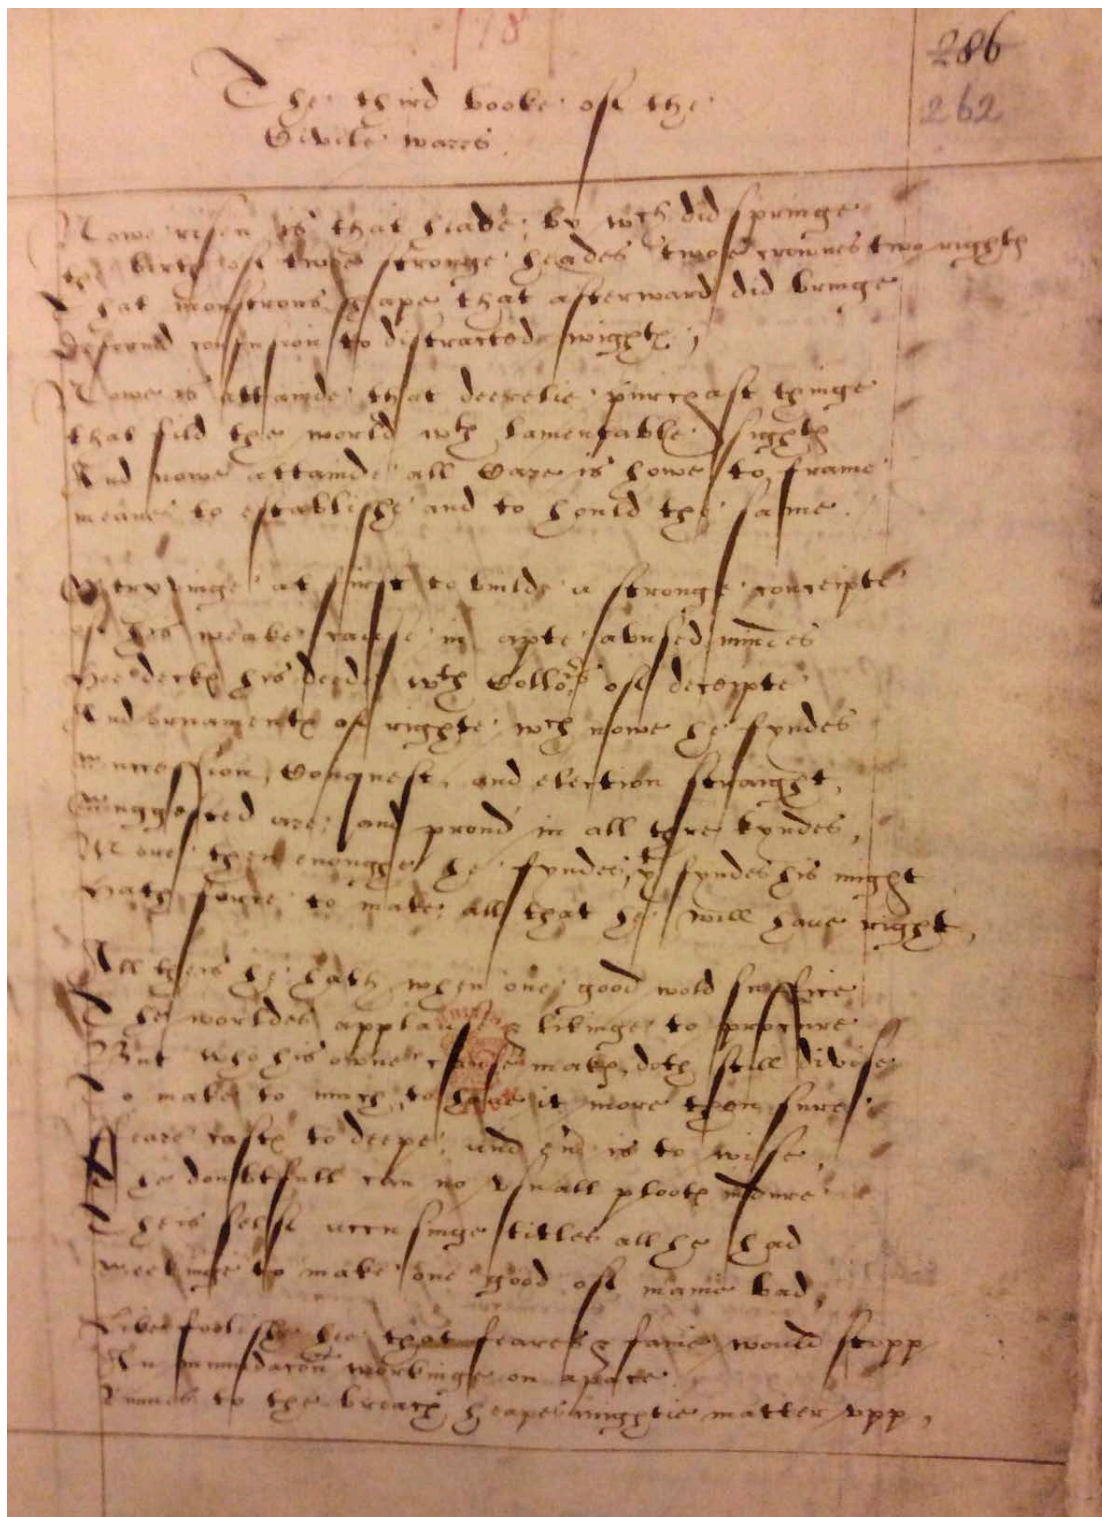 178
286
262
The third booke of the
Civile warres.
Nowe risen is that heade, by wch did springe
the birth of twoe stronge heades twoe crownes two rightes
That monstrous shape that afterward did bringe
Deformd confusion to distracted wightes;
Nowe is attainde that deerelie purchast thinge
that fild the world wth lamentable sightes
And nowe attainde all Care is howe to frame
meanes to establishe and to hould the same.
Stryvinge at first to builde a stronge conceipte
of his weake cause in apte abused mindes
hee deckes his deede wth Collors of deceipte
And ornamentes of righte wch nowe he fyndes
Succession, Conquest, and election straight,
Suggested are, and proud in all thre kyndes,
More then enoughe he fyndes, yt fyndes his might
hath force to make all that he will have right,
All theis he hath when one good wold suffice
The worldes applause & likinge to procure
But who his owne cause makes, doth still divise
To make to much, to have it more then sure:
Feare castes to deepe, and end is to wise,
The doubtfull can no usuall plootes indure
Theis selfe accusinge titles all he had
Seekinge to make one good of manie bad,
Like foolishe hee that feares & faine would stopp
An inundacon workinge on apace
Runnes to the breach heapes mightie matter vpp,